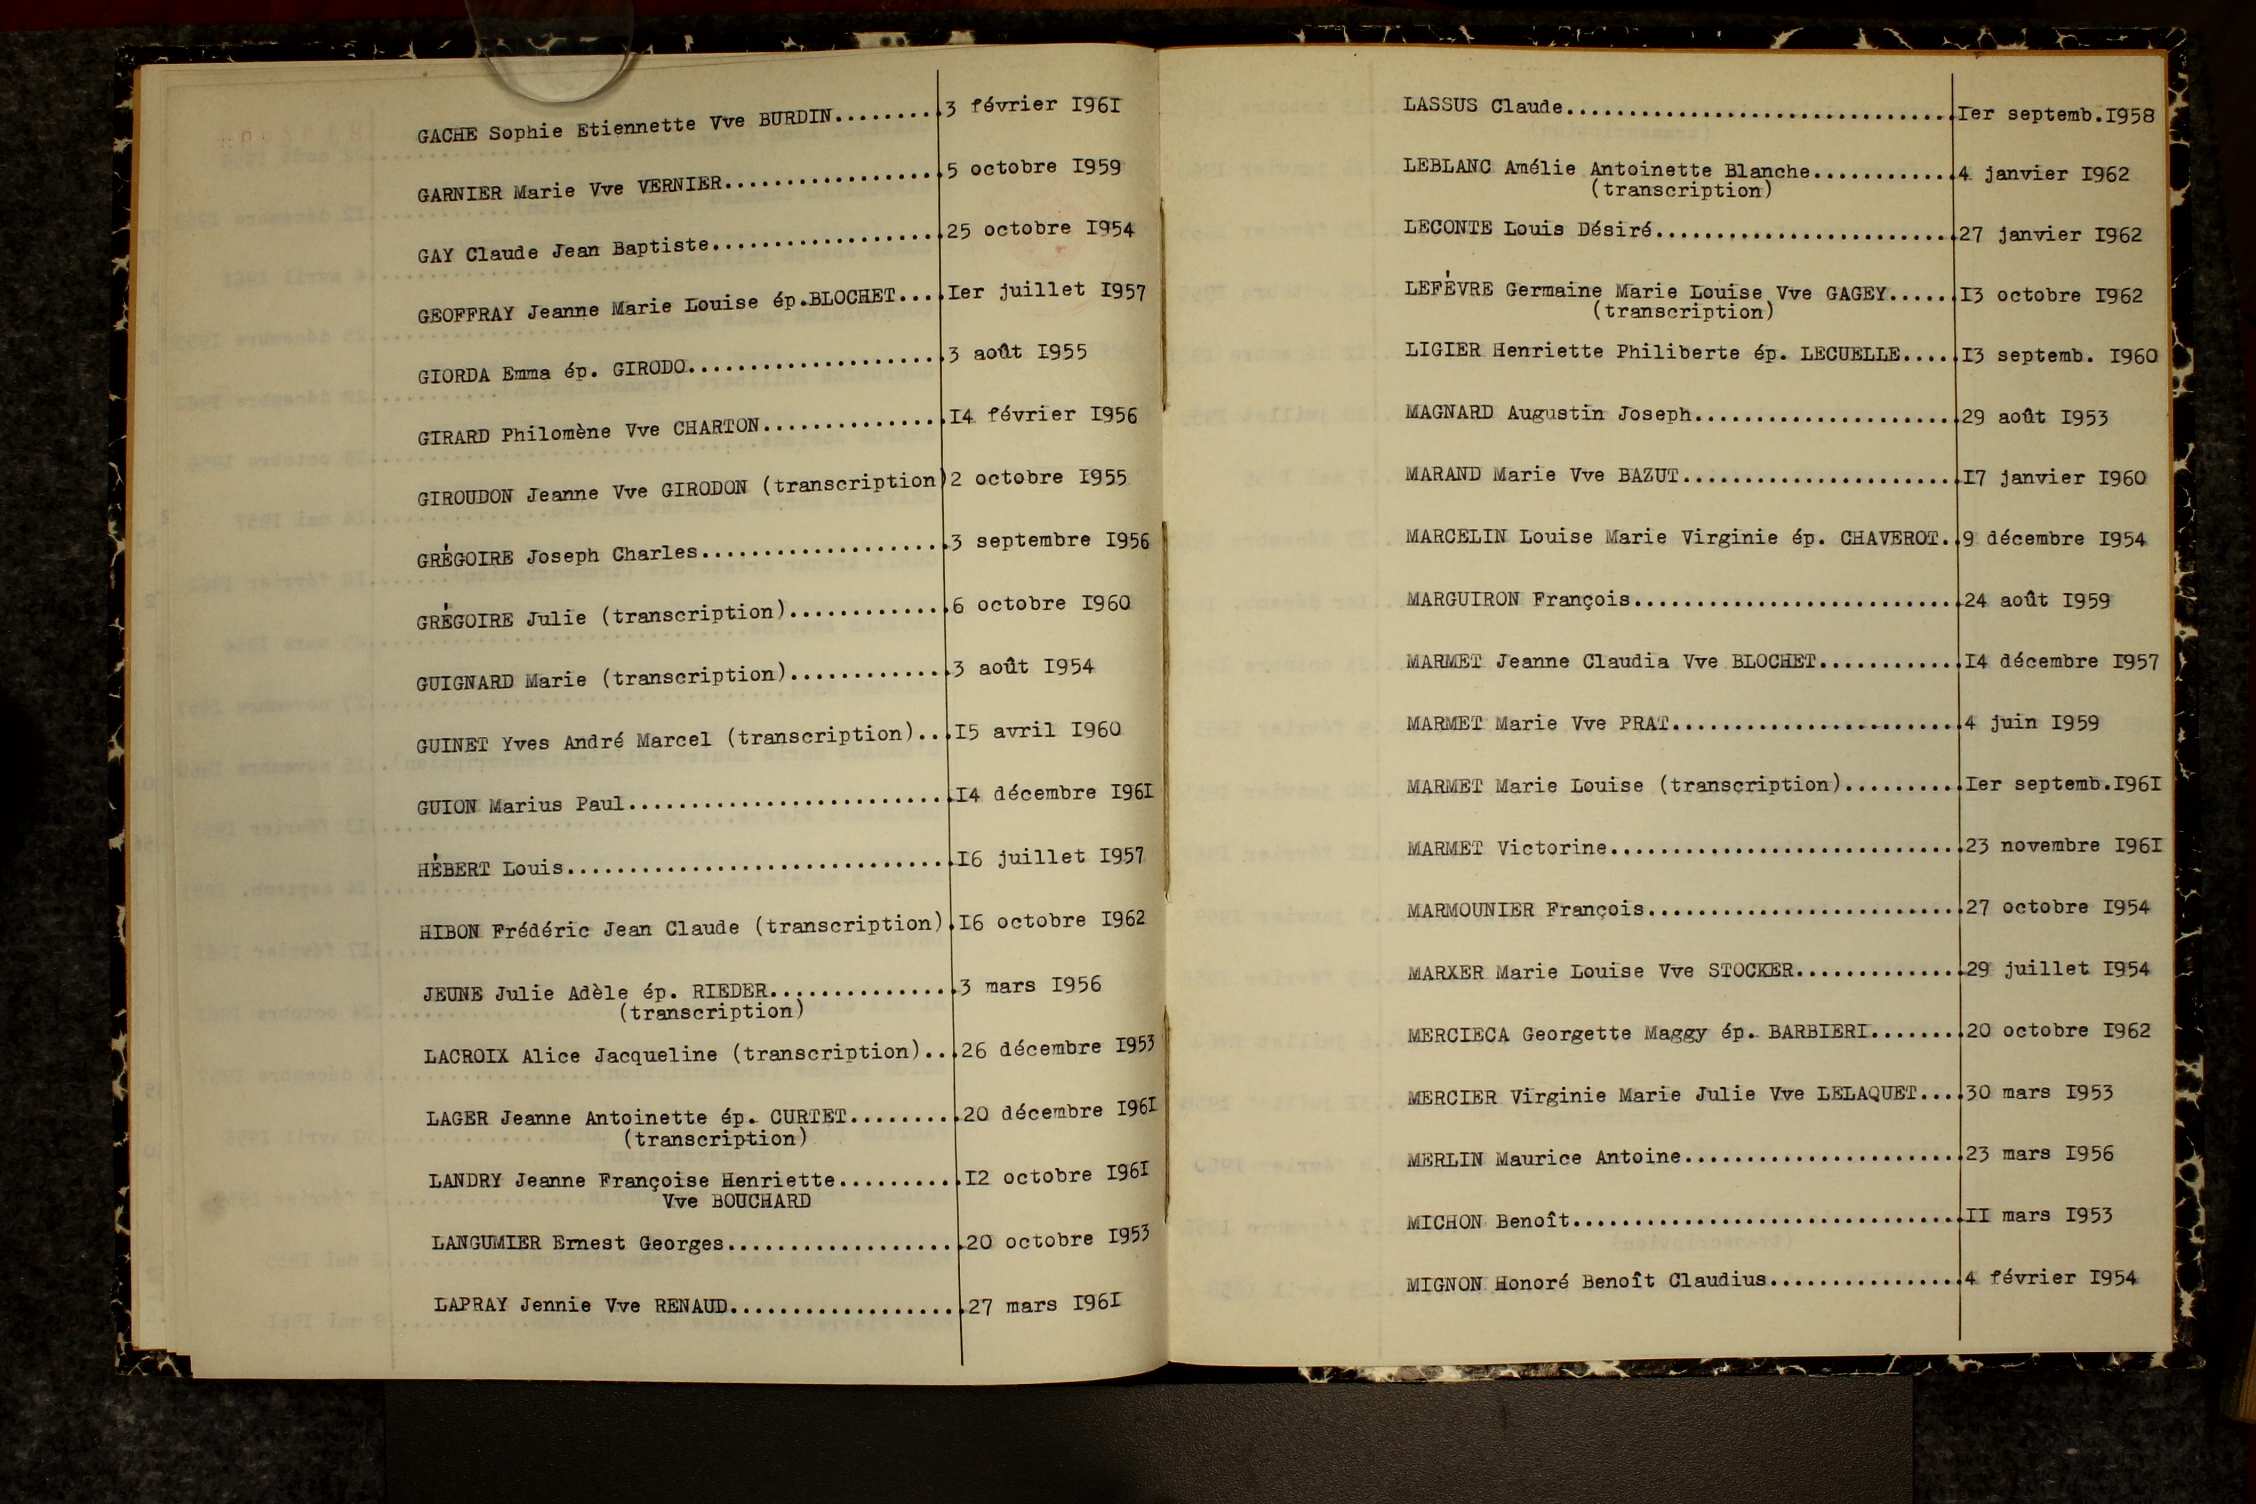 GACHE Sophie Etiennette Vve BURDIN.........3 février I96I
GARNIER Marie Vve VERNIER..................5 octobre I959
GAY Claude Jean Baptiste...................25 octobre I954
GEOFFRAY Jeanne Marie Louise ép.BLOCHET....Ier juillet I957
GIORDA Emma ép. GIRODO.....................3 août I955
GIRARD Philomène Vve CHARTON...............I4 février I956
GIROUDON Jeanne Vve GIRODON (transcription)2 octobre I955
GRÉGOIRE Joseph Charles....................3 septembre I956
GRÉGOIRE Julie (transcription).............6 octobre I960
GUIGNARD Marie (transcription).............3 août I954
GUINET Yves André Marcel (transcription)...I5 avril I960
GUION Marius Paul..........................I4 décembre I96I
HÉBERT Louis...............................I6 juillet I957
HIBON Frédéric Jean Claude (transcription).I6 octobre I962
JEUNE Julie Adèle ép. RIEDER...............3 mars I956
(transcription)
LACROIX Alice Jacqueline (transcription)...26 décembre I953
LAGER Jeanne Antoinette ép. CURTET.........20 décembre I96I
(transcription)
LANDRY Jeanne Françoise Henriette..........I2 octobre I96I
Vve BOUCHARD
LANGUMIER Ernest Georges...................20 octobre I953
LAPRAY Jennie Vve RENAUD...................27 mars I96I
LASSUS Claude...............................Ier septemb.I958
LEBLANC Amélie Antoinette Blanche............4 janvier I962
(transcription)
LECONTE Louis Désiré.........................27 janvier I962
LEFÉVRE Germaine Marie Louise Vve GAGEY......I3 octobre I962
(transcription)
LIGIER Henriette Philiberte ép. LECUELLE.....I3 septemb. I960
MAGNARD Augustin Joseph......................29 août I953
MARAND Marie Vve BAZUT.......................I7 janvier I960
MARCELIN Louise Marie Virginie ép. CHAVEROT..9 décembre I954
MARGUIRON François...........................24 août I959
MARMET Jeanne Claudia Vve BLOCHET............I4 décembre I957
MARMET Marie Vve PRAT........................4 juin I959
MARMET Marie Louise (transcription)..........Ier septemb.I96I
MARMET Victorine.............................23 novembre I96I
MARMOUNIER François..........................27 octobre I954
MARXER Marie Louise Vve STOCKER..............29 juillet I954
MERCIECA Georgette Maggy ép. BARBIERI........20 octobre I962
MERCIER Virginie Marie Julie Vve LELAQUET....30 mars I953
MERLIN Maurice Antoine.......................23 mars I956
MICHON Benoît................................II mars I953
MIGNON Honoré Benoît Claudius................4 février I954